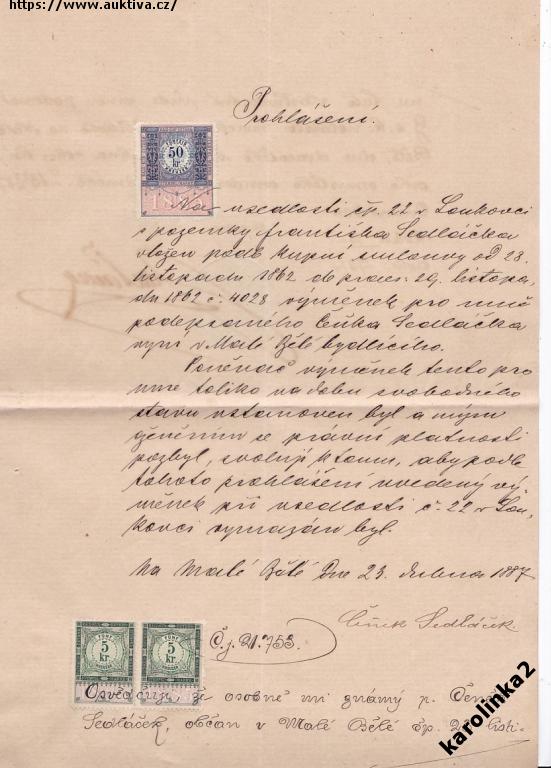 https://www.auktiva.cz/
Prohlášení.
50
kr
1885
Na usedlosti čp. 22 v Loukovci
s pozemky Františka Sedláčka
vložen podle kupní smlouvy od 28.
listopadu 1862 de praes. 29. listopa,
du 1862 č. 4028 výměnek pro mně
podepsaného Čeňka Sedláčka
nyní v Malé Bělé bydlícího.
Poněvač výměnek tento pro
mne toliko na dobu svobodného
stavu ustanoven byl a mým
ženěním se právní platnosti
pozbyl, svoluji k tomu, aby podle
tohoto prohlášení uvedený vý,
měnek při usedlosti č. 22 v Lou,
kovci vymazán byl.
Na Malé Bělé dne 23. dubna 1887
Čeněk Sedláček
Č.j. 21.753.
FÜNF
5
kr.
FÜNF
5
kr.
Osvědčuji, že osobně mi známý p. Čeněk
Sedláček, občan v Malé Bělé čp. listi-
karolinka2